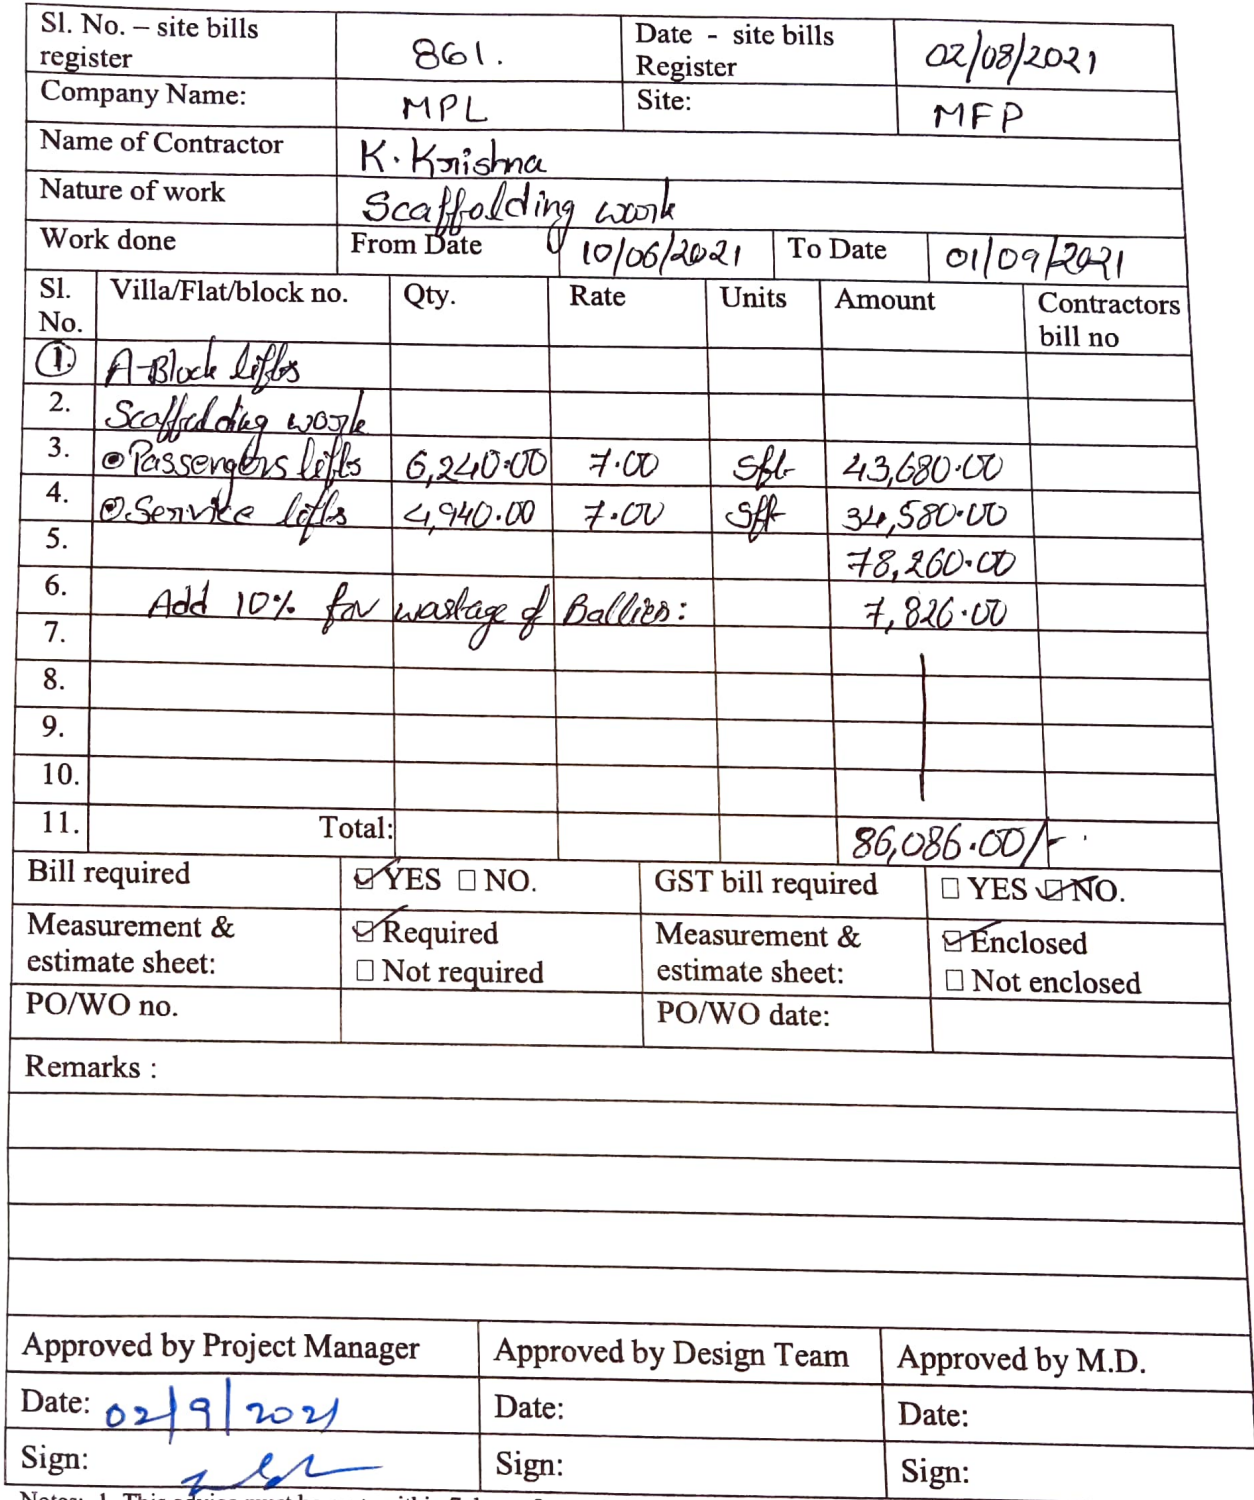 Sl. No. – site bills register 861. Date - site bills Register 02/08/2021
Company Name: MPL Site: MFP
Name of Contractor K. Krishna
Nature of work Scaffolding work
Work done From Date 10/06/2021 To Date 01/09/2021
Sl. No. Villa/Flat/block no. Qty. Rate Units Amount Contractors bill no
1. A-Block lifts
2. Scaffolding work
3. Passengers lifts 6,240.00 7.00 Sft 43,680.00
4. Service lifts 4,940.00 7.00 Sft 34,580.00
5. 78,260.00
6. Add 10% for wastage of Ballies: 7,826.00
7.
8.
9.
10.
11. Total: 86,086.00/-
Bill required YES NO. GST bill required YES NO.
Measurement & estimate sheet: Required Not required Measurement & estimate sheet: Enclosed Not enclosed
PO/WO no. PO/WO date:
Remarks :
Approved by Project Manager Approved by Design Team Approved by M.D.
Date: 02/9/2021 Date: Date:
Sign: Sign: Sign: